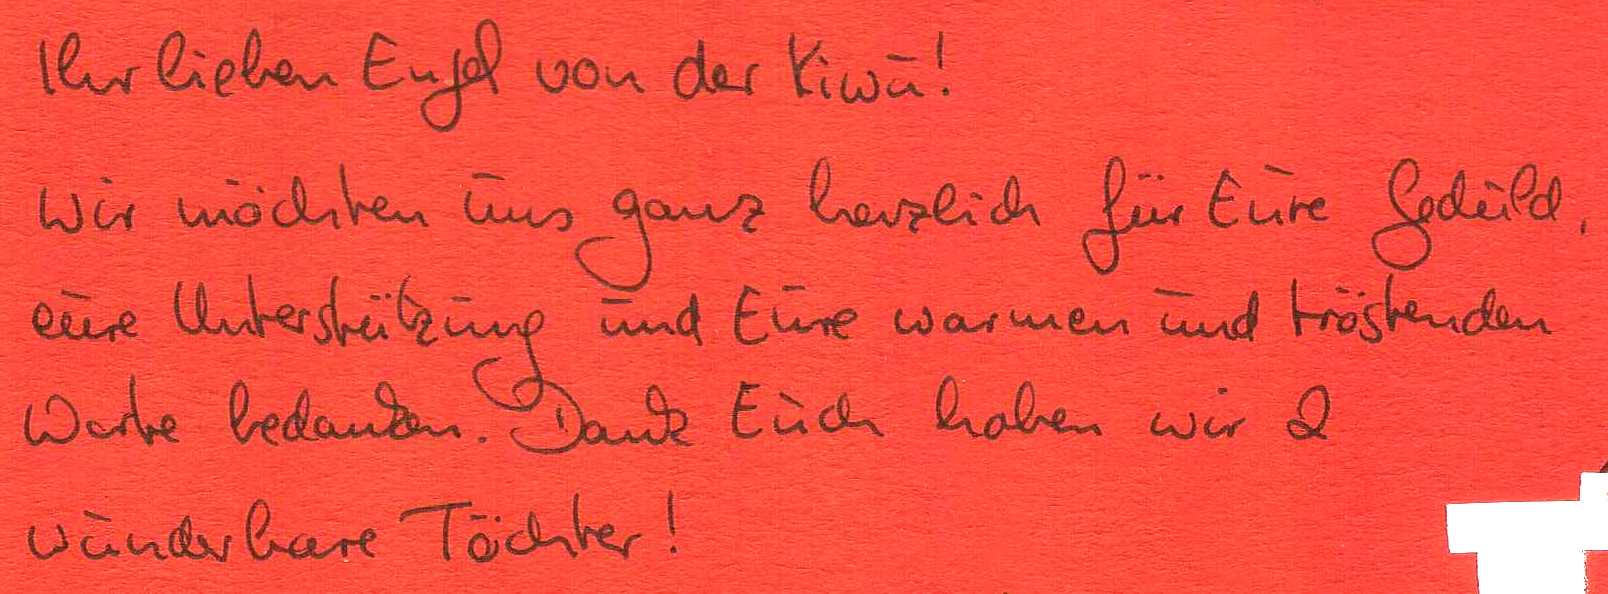 Ihr lieben Engel von der Kiwu!
Wir möchten uns ganz herzlich für Eure Geduld,
eure Unterstützung und Eure warmen und tröstenden
Worte bedanken. Dank Euch haben wir 2
wunderbare Töchter!